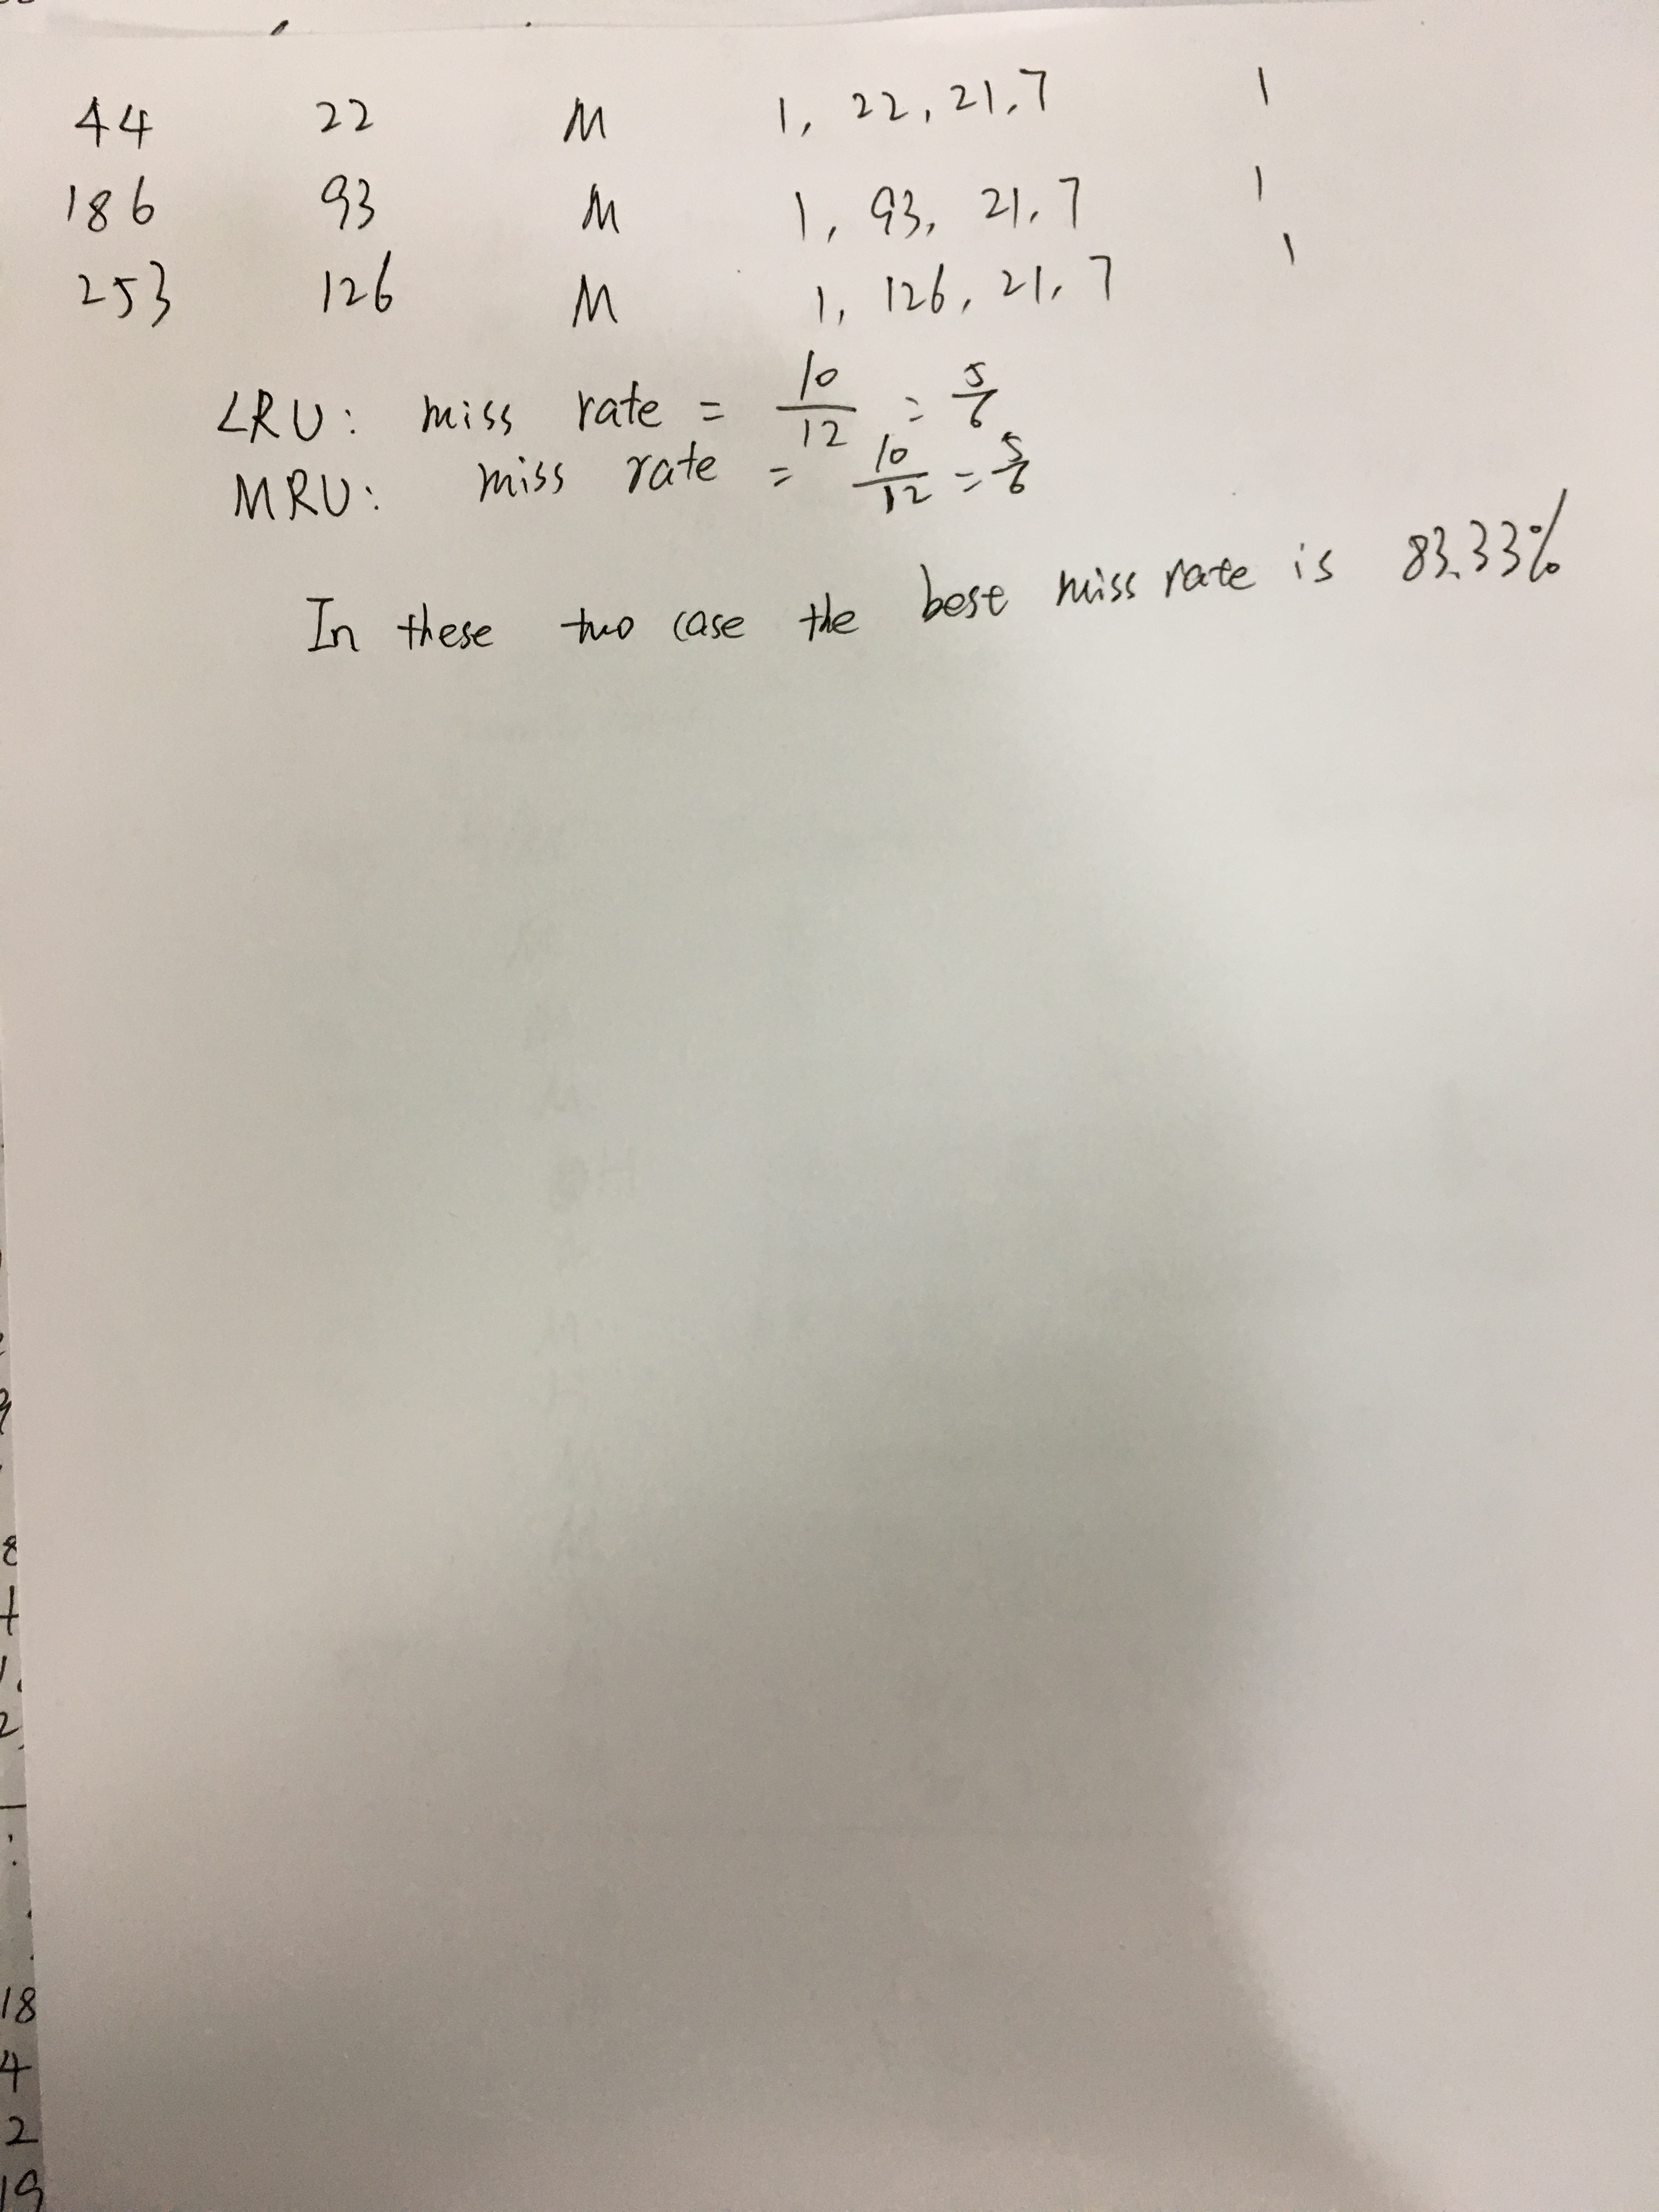 44 22 M 1, 22, 21, 7 1
186 93 M 1, 93, 21, 7 1
253 126 M 1, 126, 21, 7 1
LRU: miss rate = 10/12 = 5/6
MRU: miss rate = 10/12 = 5/6
In these two case the best miss rate is 83.33%
18
4
2
19